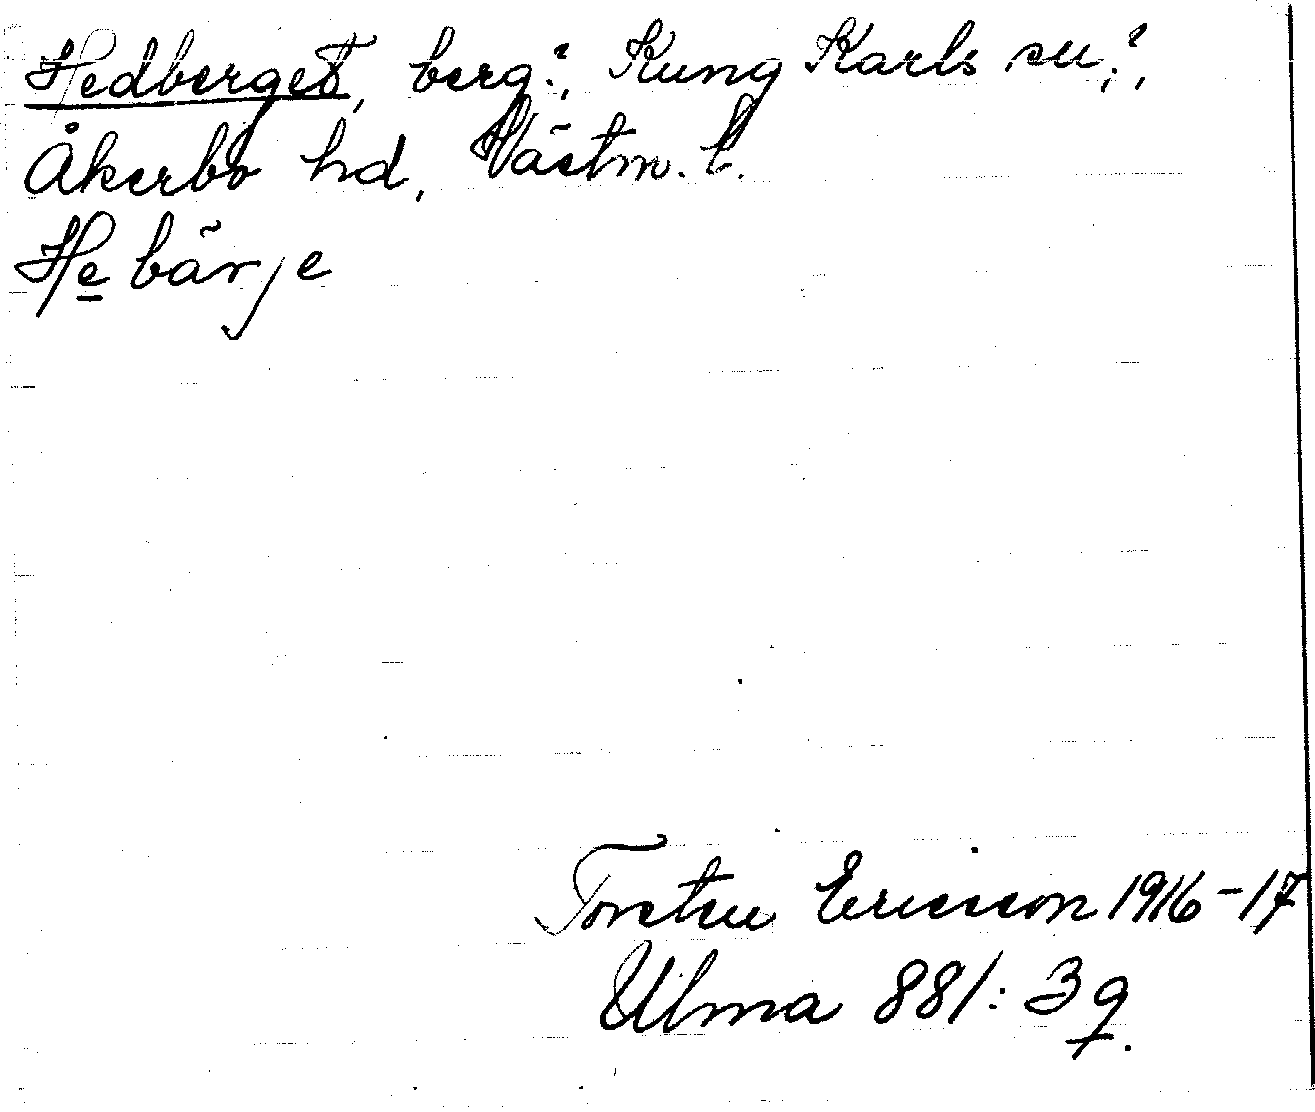 Hedberget, berg?, Kung Karls sn?,
Åkerbo hd, Västm. l.
He bärje
Torsten Ericsson 1916-17
Ulma 881:3 q.